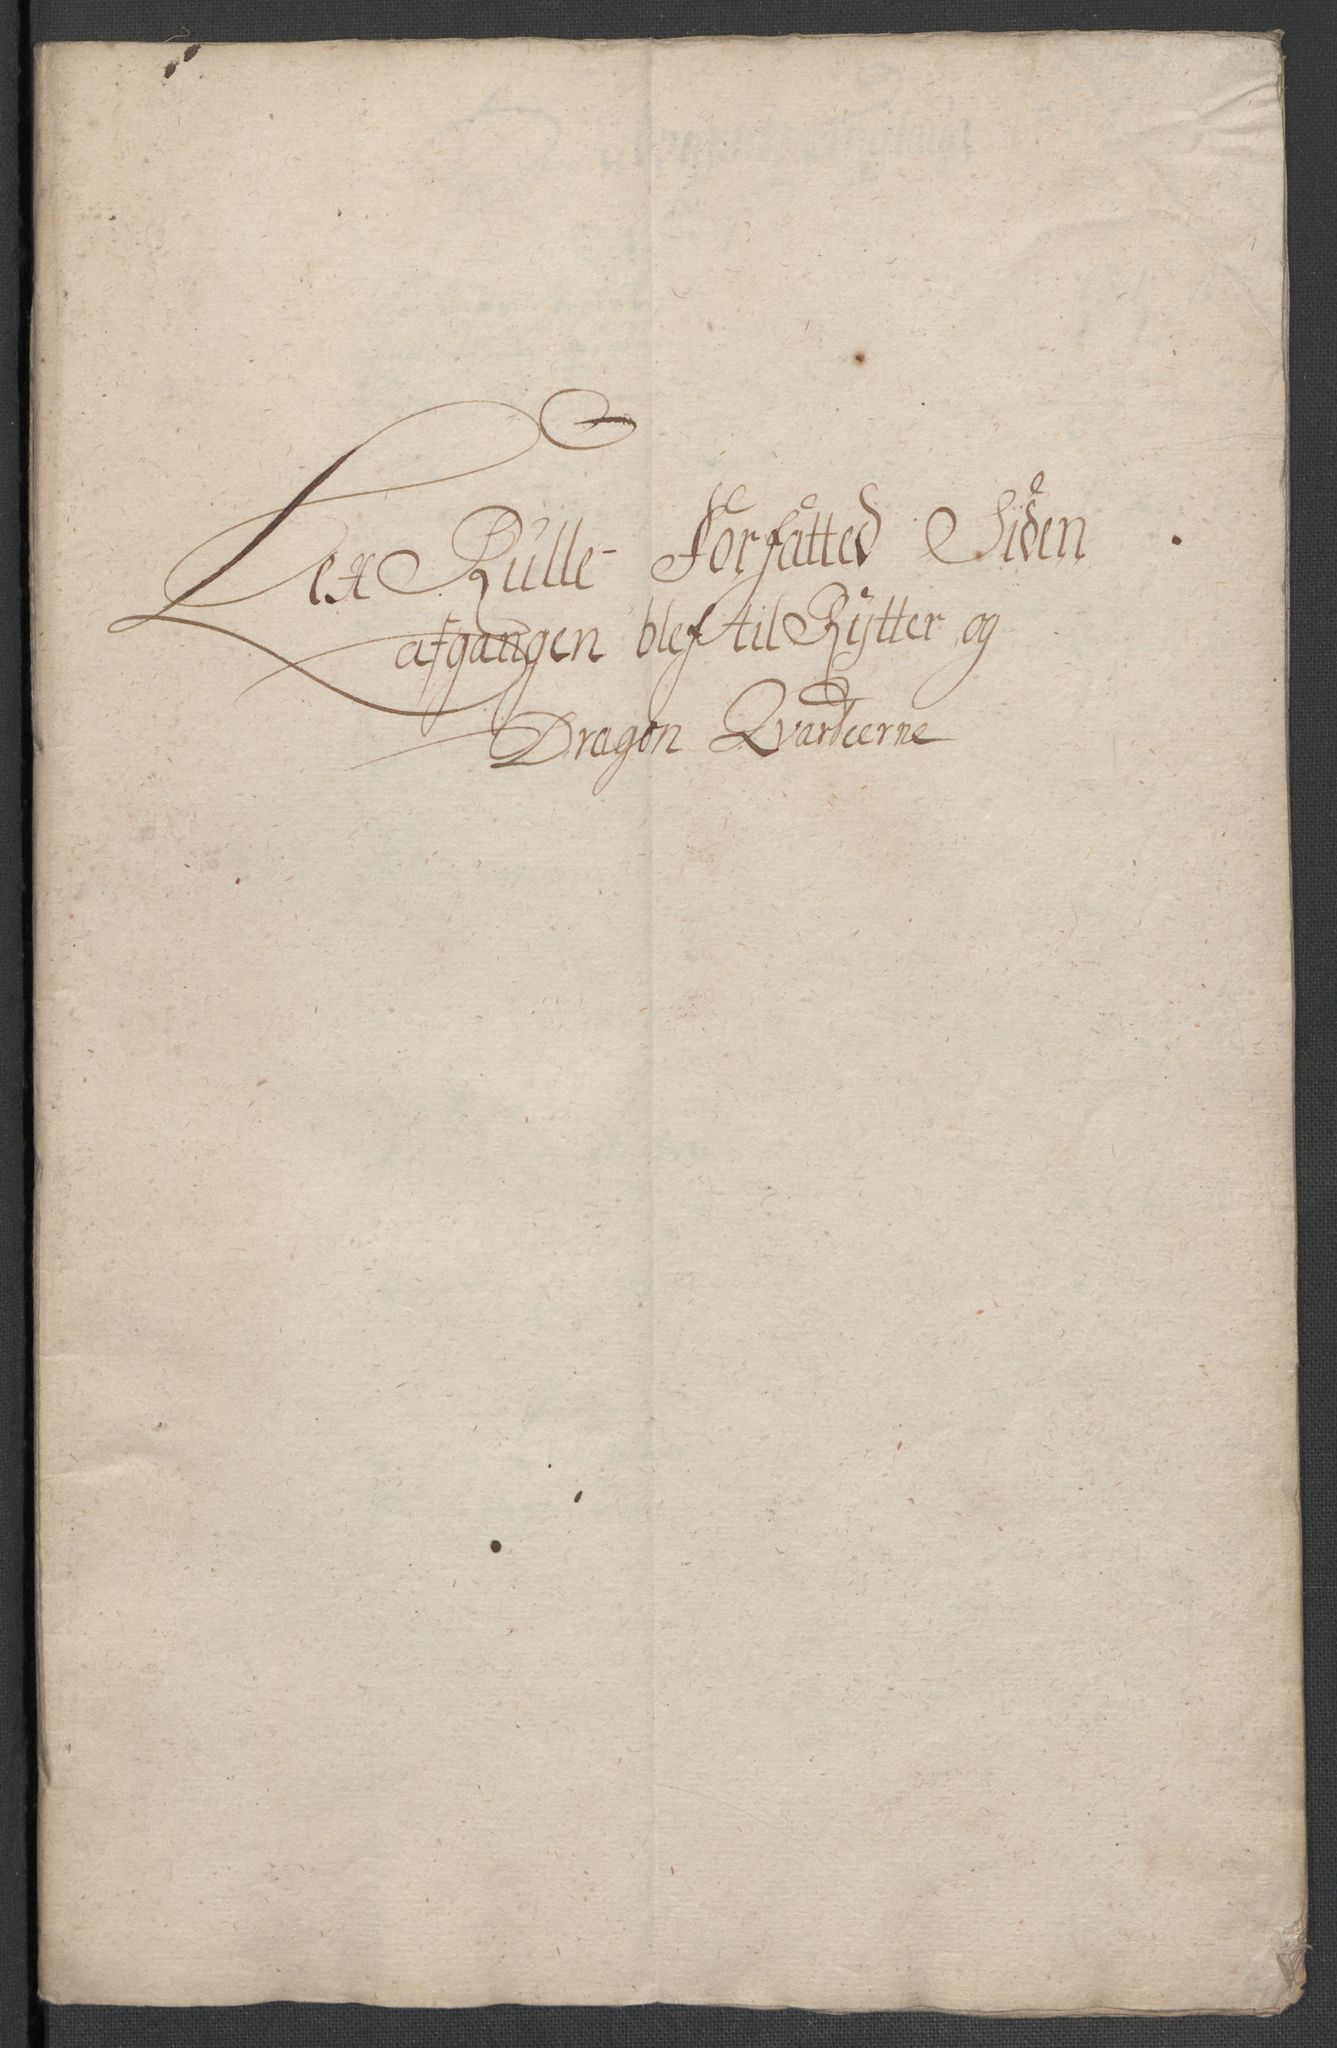 Leg Rulle Forfatted Siden
afgangen blef til Rytter og
Dragon Qvarteerne